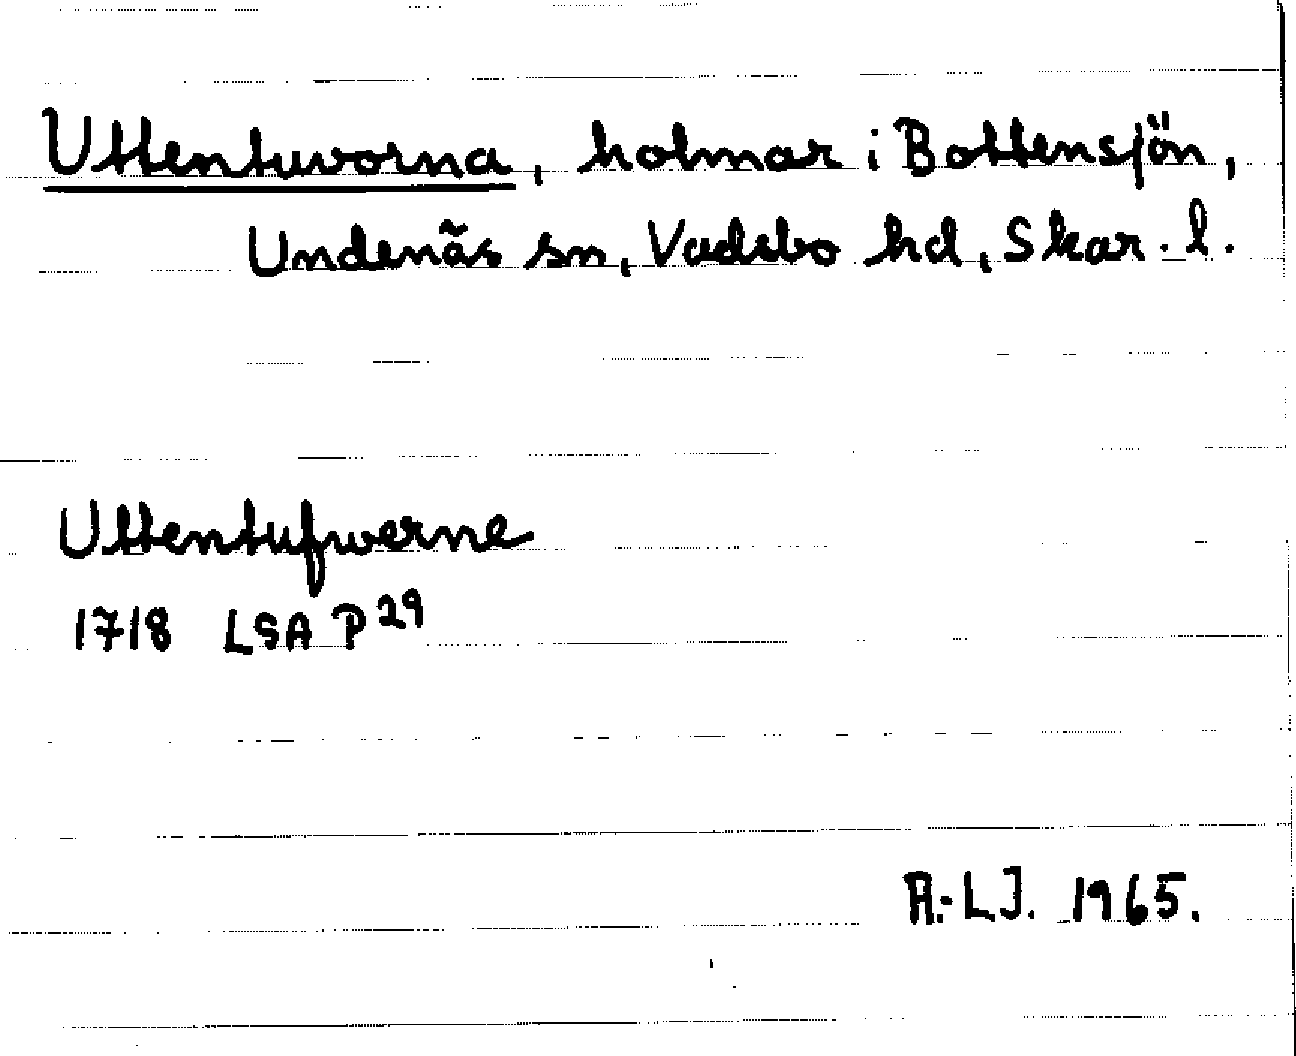 Uttentuvorna, holmar i Bottensjön,
Undenäs sn, Vadsbo hd, Skar. l.
Uttentufwerne
1718 LSA P29
A.-L.J. 1965.